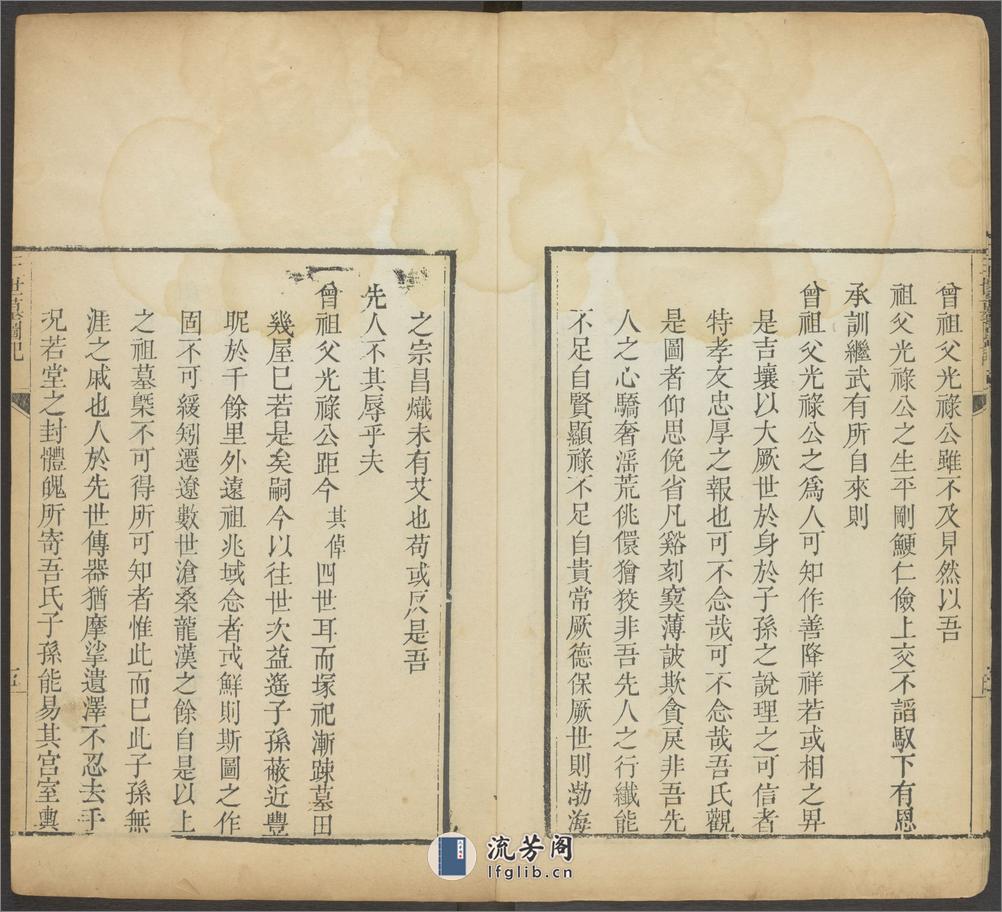 曾祖父光祿公雖不及見然以吾
祖父光祿公之生平剛鯁仁儉上交不謟馭下有恩
承訓繼武有所自來則
曾祖父光祿公之爲人可知作善降祥若或相之畀
是吉壤以大厥世於身於子孫之說理之可信者
特孝友忠厚之報也可不念哉可不念哉吾氏觀
是圖者仰思俛省凡谿刻寞薄詖欺貪戾非吾先
人之心驕奢滛荒佻儇獪狡非吾先人之行纖能
不足自賢顯祿不足自貴常厥德保厥世則渤海
之宗昌熾未有艾也苟或反是吾
先人不其辱乎夫
曾祖父光祿公距今其倬四世耳而塚祀漸踈墓田
幾屋巳若是矣嗣今以往世次益遥子孫蔽近豐
昵於千餘里外遠祖兆域念者或鮮則斯圖之作
固不可緩矧遷遼數世滄桑龍漢之餘自是以上
之祖墓槩不可得所可知者惟此而巳此子孫無
涯之戚也人於先世傳器猶摩挲遺澤不忍去手
况若堂之封體魄所寄吾氏子孫能易其宫室輿
三世墓圖記
五
流芳阁
lfglib.cn